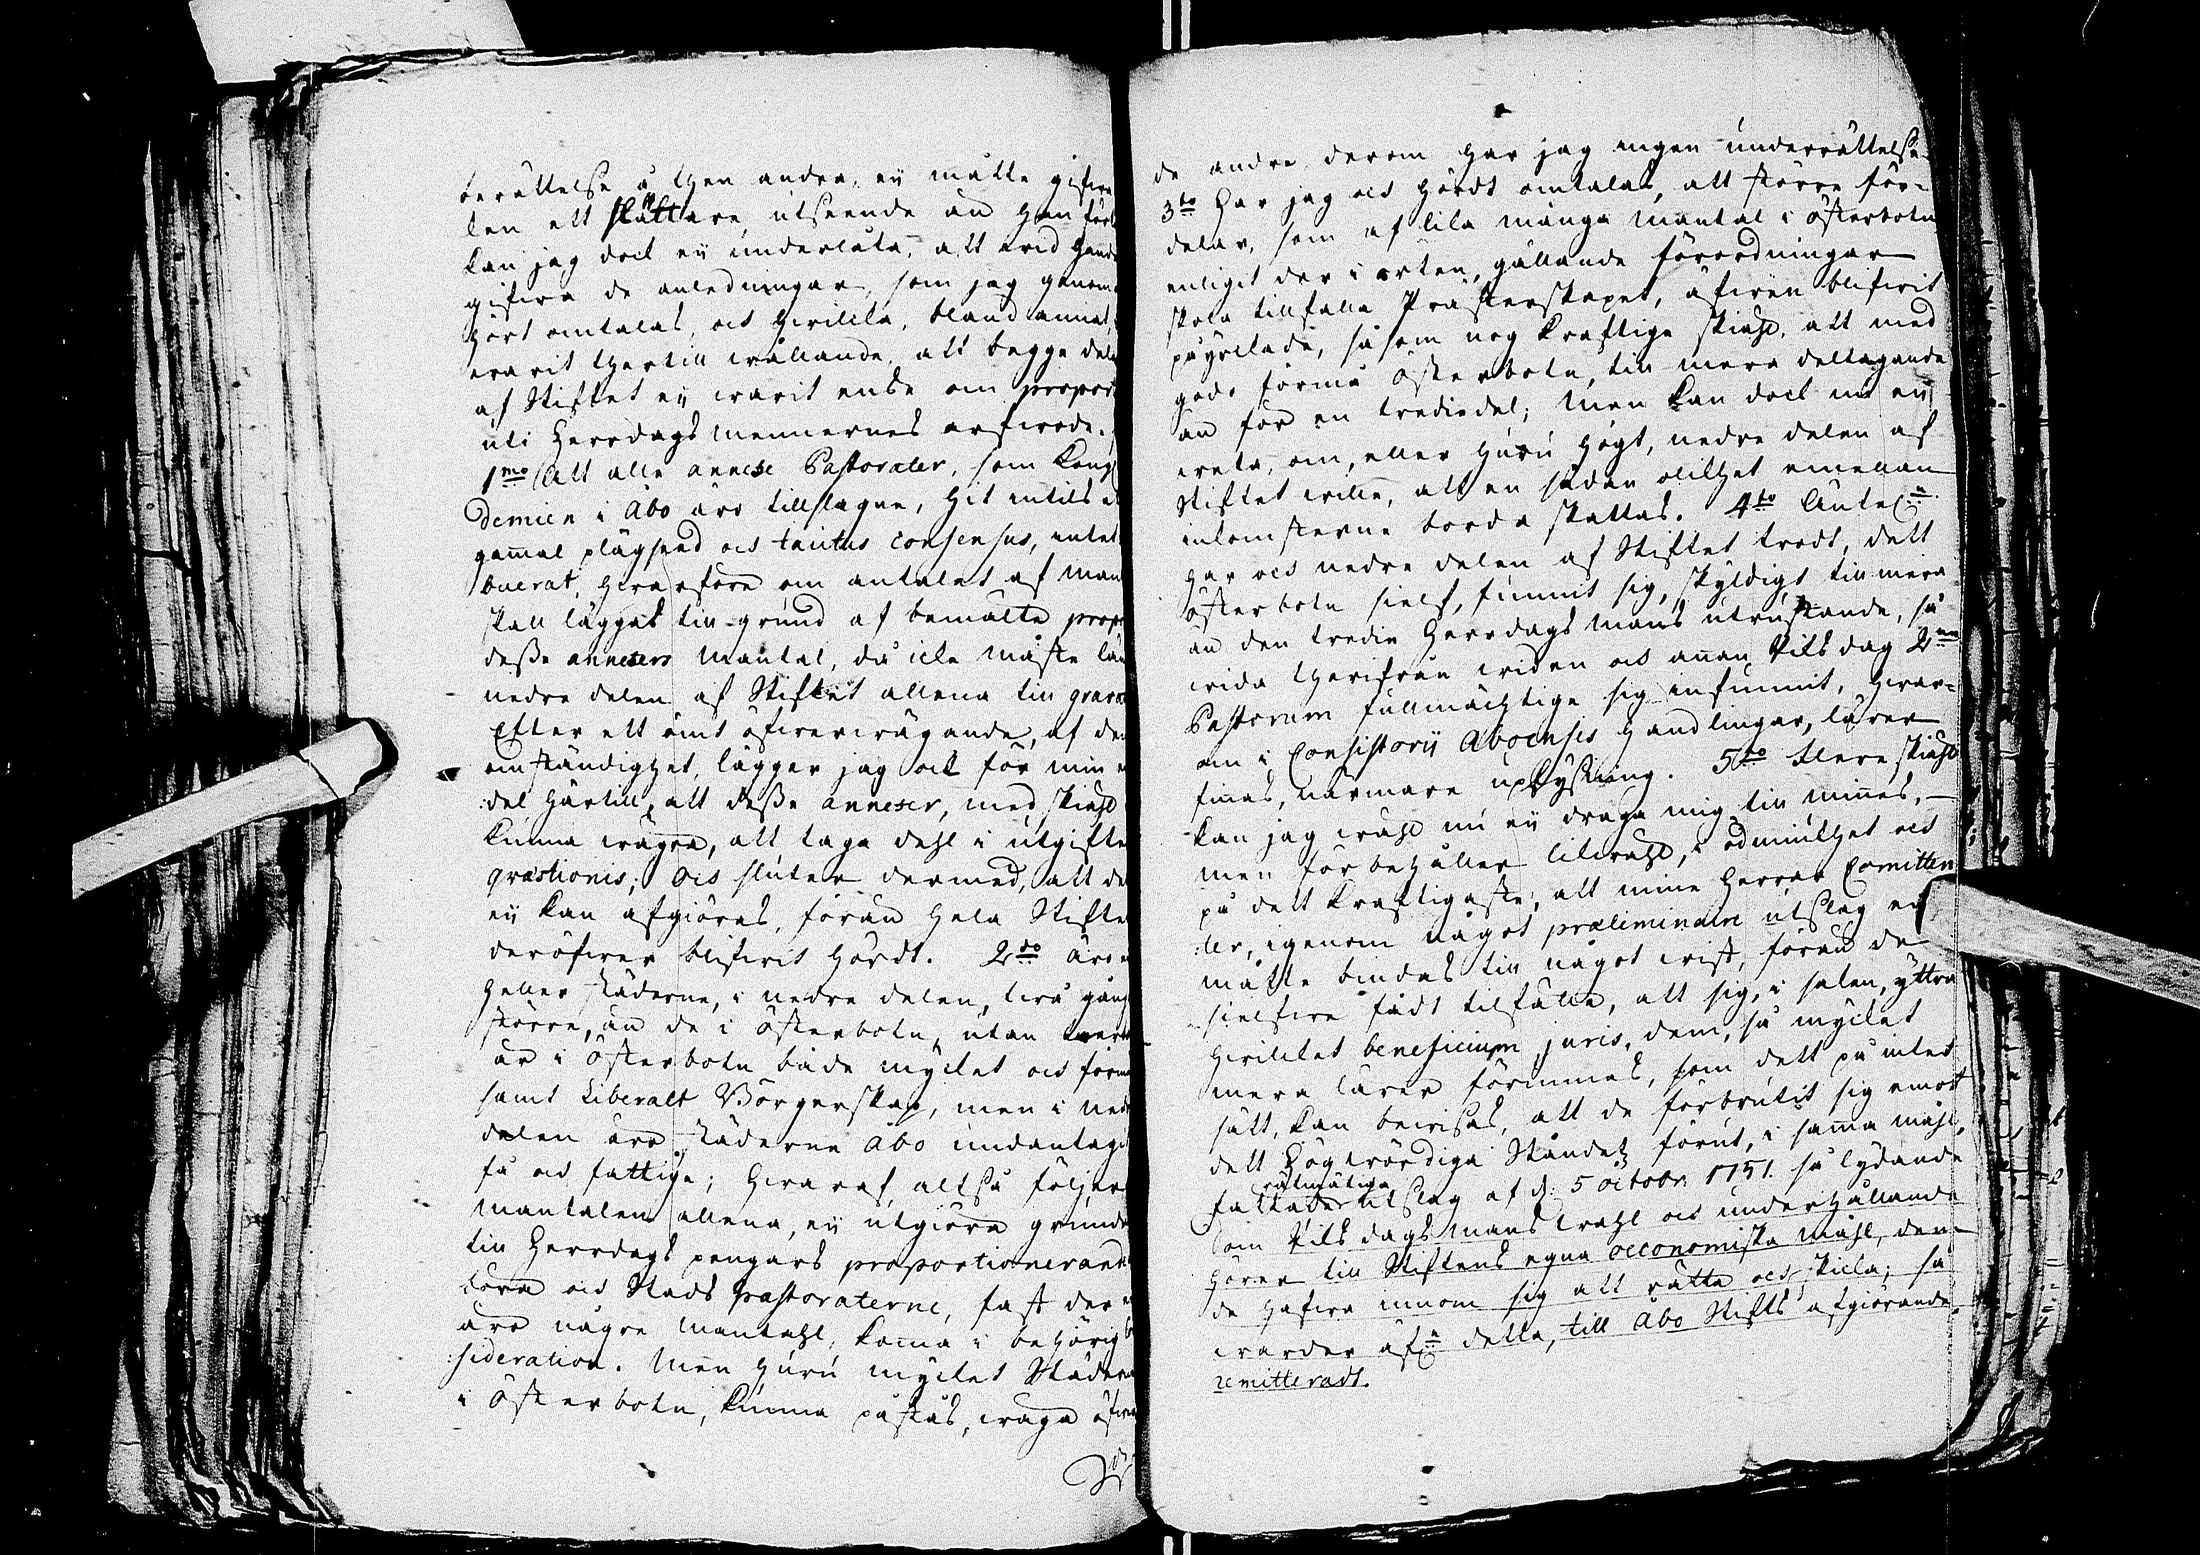 berättelse å then andra, ey måtte gifwa
ten ett slättare utseende än han för
kan jag dock ey underlåta, att wid hand
gifwa de anledningar, som jag genom
hört omtalas, och hwilcka, bland annat,
warit thertill wållande, att begge dela
af Stiftet ey warit ense om propor
uti Herrdagsmennernes arfwode.
1mo Att alla annexe Pastorater, som Kongl
demien i Åbo äro tillslagne, hit intils
gamal plägsed och tacitus consensus, intet
buerat, hwarföre om antalet af man
skall läggas till grund af bemälte prop
desse annexers Mantal, då icke måste
nedre delen af Stiftet allena till grava
Efter ett ömt öfwerwägande, af de
omständighet, lägger jag ock för min
del härtill, att desse annexer, med skiähl
kunna wägra, att taga dehl i utgifte
quæstionis; och sluter dermed, att de
ey kan afgiöras, förän hela Stifte
deröfwer blifwit hördt. 2do äro
heller städerne, i nedre delen, twå gång
större, än de i Österbotn, utan
är i Österbotn både mycket och förm
samt Liberalt Börgerskap, men i ned
delen äro städerne Åbo undantage
få och fattige; hwaraf altså följer
mantalen allena, ey utgiöra grund
till Herrdags pengars proportionerand
böra och Stads pastoraterne, fast der
äro någre mantahl, koma i behörig
sideration. Men huru mycket Städern
i Österbotn, kunna påstås, wäga öfwer
de
de andra derom har jag ingen underrättelse.
3to Har jag och hördt omtalas, att större för-
delar, som af lika många mantal i Österbotn
enligt der i orten, gällande förordningar
skola tillfalla Prästerskapet, äfwen blifwit
påyrckade, såsom nog kraftige skiähl, att med
godo förmå Österbotn, till mera deltagande
än för en trediedel; Men kan dock nu ey
weta, om, eller huru högt, nedre delen af
Stiftet wille, att en sådan olikhet emellan
inkomsterne borde skattas. 4to
har och nedre delen af Stiftet trodt, dett
Österbotn sielf, funnit sig, skyldigt till mera
än den tredie Herrdagsmans utrustande, så
wida therifrån wid en och annan Riksdag 2ne
Pastorum fullmächtige sig infunnit, hwar-
om i Consistorii Aboensis handlingar, lärer
finnas, närmare uplysning. 5to flere skiähl
kan jag wähl nu ey draga mig till minnes,
men förbehåller likwähl, i ödmiukhet och
på dett kraftigaste, att mine Herrar Comitten
:ter, igenom något præliminaire utslag ey
måtte bindas till något wist, förän de
sielfwe fådt tilfälle, att sig, i saken, yttra
hwilcket beneficium juris, dem, så mycket
mera lärer förunnas, som dett på intet
sätt, kan bewisas, att de förbrutit sig emot
dett Högwördiga Ståndets förut, i samma måhl,
rätmätiga
fattade utslag af d: 5 octobr. 1751. så lydande
Som Riksdagsmans wahl och underhållande
hörer till Stiftens egna oeconomiska måhl, den
de hafwa innom sig att rätta och skicka; så
warder äfn detta, till Åbo Stifts afgiörande
remitteradt.